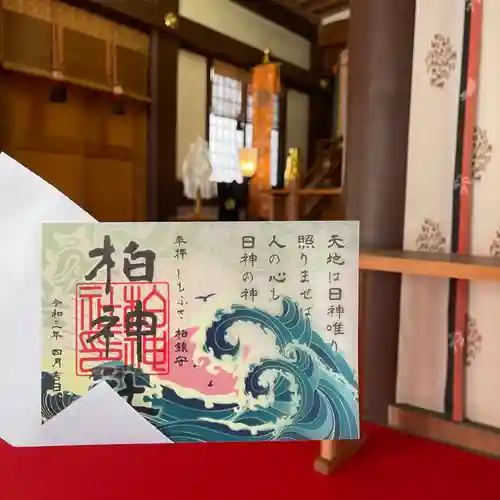 天地は日神唯り
照りませば
人の心も
日神の神
奉拝 しもふさ 柏鎮守
柏神社
令和三年 四月吉日